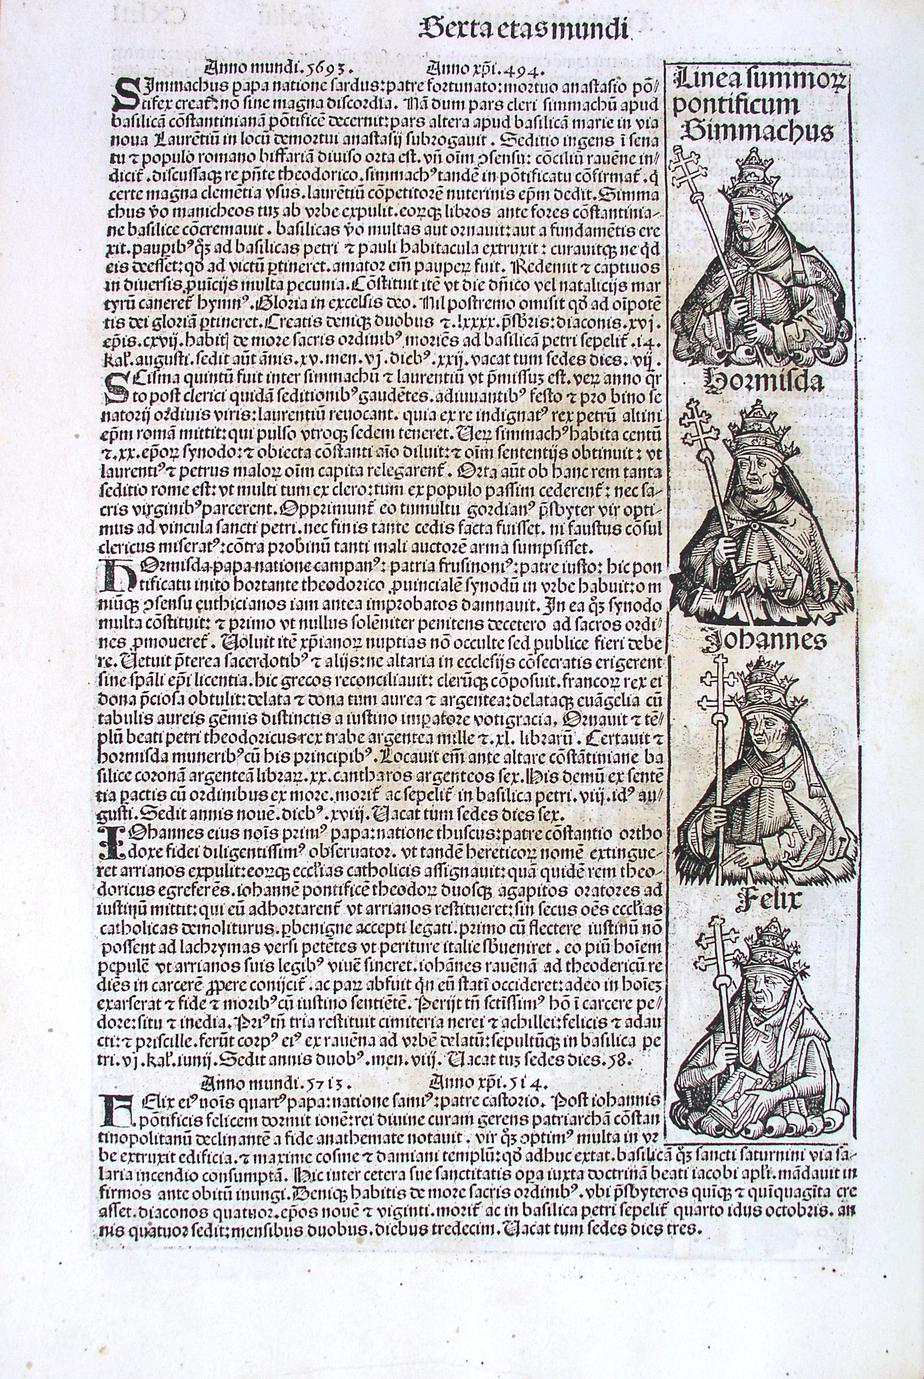 Sexta etas mundi
Anno mundi.5693. Anno xp̄i.494.
SImmachus papa natione sardus: patre fortunato: mortuo anastasio pō/
tifex creatꝰ: nō sine magna discordia. Nā dum pars cleri simmachū apud
basilicā cōstantinianā pōtificē decernit: pars altera apud basilicā marie in via
noua Laurētiū in locū demortui anastasij subrogauit. Seditio ingens i sena
tu ⁊ populo romano biffariā diuiso orta est. vn̄ oīm ↄsensu: cōciliū rauēne in/
dicit̄. discussaqꝫ re pn̄te theodorico. simmachꝰ tandē in pōtificatu cōfirmat̄. q
certe magna clemētia vsus. laurētiū cōpetitorē nuterinis ep̄m dedit. Simma
chus v̄o manicheos tuꝫ ab vrbe expulit. eorꝙ libros ante fores cōstantinia-
ne basilice cōcremauit. basilicas v̄o multas aut ornauit: aut a fundamētis ere
xit. pauꝑibꝰ qꝫ ad basilicas petri ⁊ pauli habitacula extruxit: curauitqꝫ ne qd
eis deesset: qd̄ ad victū ꝑtineret. amator em̄ pauperꝝ fuit. Redemit ⁊ captiuos
in diuersis ꝓuicijs multa pecunia. Cōstituit itē vt die dn̄ico vel natalicijs mar
tyrū caneret̄ hymnꝰ. Gloria in excelsis deo. Nil postremo omisit qd̄ ad oīpotē
tis dei gloriā ꝑtineret. Creatis deniqꝫ duobus ⁊.lxxxx.p̄sbris: diaconis.xvj.
ep̄is.cxvij. habitꝭ de more sacris ordinibꝰ moriēs ad basilicā petri sepelit̄.14.
kal̄. augusti. sedit aūt ānis.xv.men.vj.diebꝰ.xxij.vacat tum sedes dies.vij.
SCisma quintū fuit inter simmachū ⁊ laurentiū vt p̄missuꝫ est. veꝝ anno qr
to post clerici quidā seditionibꝰ gaudētes. adiuuantibꝰ festo ⁊ pro bino se
natorij ordinis viris: laurentiū reuocant. quia ex re indignatꝰ rex petrū altini
ep̄m romā mittit: qui pulso vtroqꝫ sedem teneret. Ueꝝ simmachꝰ habita centū
⁊.xx.ep̄oꝝ synodo: ⁊ obiecta cōstanti aīo diluit: ⁊ oīm sententijs obtinuit: vt
laurentiꝰ ⁊ petrus maloꝝ oīm capita relegarent̄. Orta aūt ob hanc rem tanta
seditio rome est: vt multi tum ex clero: tum ex populo passim cederent̄: nec sa-
cris virginibꝰ parcerent. Opprimunt̄ eo tumultu gordianꝰ p̄sbyter vir opti-
mus ad vincula sancti petri. nec finis tante cedis facta fuisset. ni faustus cōsul
clericus miseratꝰ: cōtra probinū tanti mali auctorē arma sumpsisset.
HOrmisda papa natione campanꝰ: patria frusinoniꝰ: patre iusto: hic pon
tificatu inito hortante theodorico ꝓuincialē synodū in vrbe habuit: om
niūqꝫ ↄsensu euthicianos iam antea improbatos damnauit. In ea qꝫ synodo
multa cōstituit: ⁊ primo vt nullus soleniter penitens decetero ad sacros ordi-
nes ꝓmoueret̄. Uoluit itē xp̄ianoꝝ nuptias nō occulte sed publice fieri debe
re. Uetuit p̄terea sacerdotibꝰ ⁊ alijs: ne altaria in ecclesijs cōsecratis erigerent
sine sp̄ali ep̄i licentia. hic grecos reconciliauit: clerūqꝫ cōposuit. francoꝝ rex ei
dona p̄ciosa obtulit: delata ⁊ dona tum aurea ⁊ argentea: delataqꝫ euāgelia cū
tabulis aureis gēmis distinctis a iustino imꝑatore voti gracia. Ornauit ⁊ tē-
plū beati petri theodoricus rex trabe argentea mille ⁊.xl. libraꝝ. Certauit ⁊
hormisda muneribꝰ cū his principibꝰ. Locauit em̄ ante altare cōstātiniane ba
silice coronā argenteā libraꝝ.xx.cantharos argenteos sex. His demū ex sentē
tia ꝑactis cū ordinibus ex more. morit̄ ac sepelit̄ in basilica petri.viij.idꝰ au/
gusti. Sedit annis nouē. diebꝰ.xviij. Uacat tum sedes dies sex.
IOhannes eius nois primꝰ papa: natione thuscus: patre cōstantio ortho
doxe fidei diligentissimꝰ obseruator. vt tandē hereticoꝝ nomē extingue-
ret arrianos expulit: eorꝙ eccl̄ias catholicis assignauit: qua quidē rem theo-
doricus egre ferēs. iohannē pontificē theodoꝝ duosqꝫ agapitos oratores ad
iustinū mittit: qui eū adhortarent̄ vt arrianos restitueret: sin secus oēs eccl̄ias
catholicas demoliturus. ꝑbenigne accepti legati. primo cū flectere iustinū nō
possent ad lachrymas versi petētes vt periture italie sbueniret. eo piū hoīem
pepulē vt arrianos suis legibꝰ viuē sineret. iohānes rauēnā ad theodericū re
diēs in carcerē ꝓpere conijcit̄. ac paꝝ abfuit qn̄ eū statī occideret: adeo in hoīeꝫ
exarserat ⁊ fide ⁊ moribꝰ cū iustino sentiētē. Perijt tn̄ sctissimꝰ hō i carcere pe-
dore: situ ⁊ inedia. Priꝰ tn̄ tria restituit cimiteria nerei ⁊ achillei: felicis ⁊ adau
cti: ⁊ priscille. ferūt corpꝰ eiꝰ ex rauēna ad vrbē delatū: sepultūqꝫ in basilica pe
tri.vj.kal̄.iunij. Sedit annis duobꝰ.men.viij. Uacat tuꝫ sedes dies.58.
Anno mundi.5713. Anno xp̄i.514.
FElix eiꝰ nois quartꝰ papa: natione samiꝰ: patre castorio. Post iohannis
pontificis felicem dormitionē: rei diuine curam gerens patriarchā cōstan
tinopolitanū declinantē a fide anathemate notauit. vir qꝫ optimꝰ multa in vr
be extruxit edificia. ⁊ maxime cosme ⁊ damiani templū: qd̄ adhuc extat. basilicā qꝫ sancti saturnini via sa-
laria incendio consumptā. Hic inter cetera sue sanctitatis oꝑa iuxta doctrinā beati iacobi apl̄i. mādauit in
firmos ante obitū inungi. Deniqꝫ habitis de more sacris ordinibꝰ. vbi p̄sbyteros quiqꝫ ⁊ quīquagīta cre
asset. diaconos quatuor. ep̄os nouē ⁊ viginti. morit̄ ac in basilica petri sepelit̄ quarto idus octobris. an
nis quatuor sedit: mensibus duobus. diebus tredecim. Uacat tum sedes dies tres.
Linea summoꝝ
pontificum
Simmachus
Hormisda
Johannes
Felix